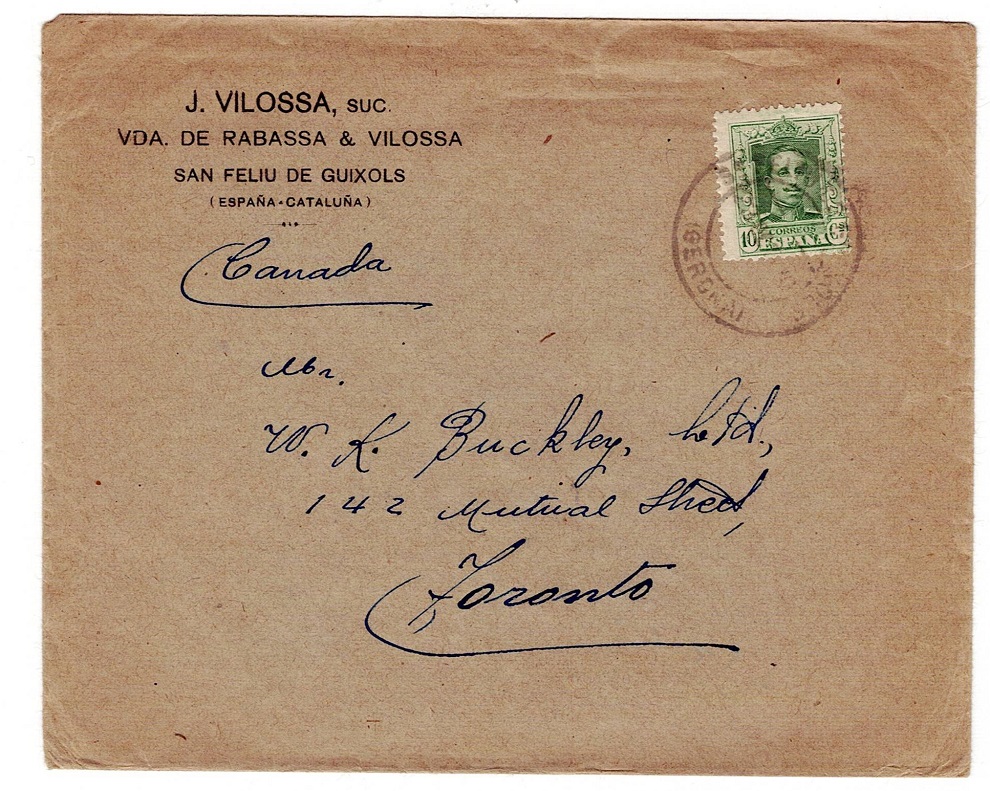 J. VILOSSA, SUC.
VDA. DE RABASSA & VILOSSA
SAN FELIU DE GUIXOLS
(ESPAÑA-CATALUÑA)
CORREOS
10 ESPAÑA Cs
(GERONA)
Canada
Mr.
W. K. Buckley, Ltd.,
142 Mutual Street,
Toronto